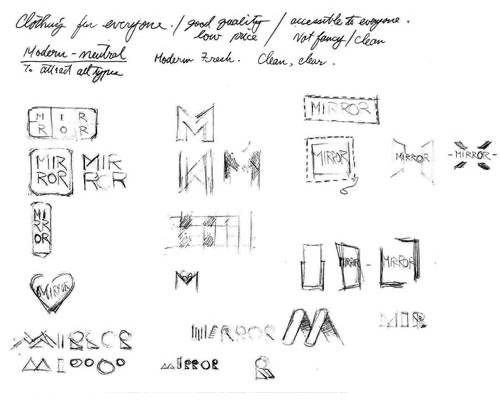 Clothing for everyone. / good quality / accessible to everyone.
low price / Not fancy / clean
Modern-neutral Modern Fresh. Clean, clear.
To attract all types
MIR
ROR
M
MIRROR
MIR
ROR
MIR
ROR
M
M
MIRROR
MIRROR
-MIRROR-
MI
RR
OR
MIRROR
M
MIRROR
MIRROR
MIRROR
MIRROR
M
MIR
MIRROR
R